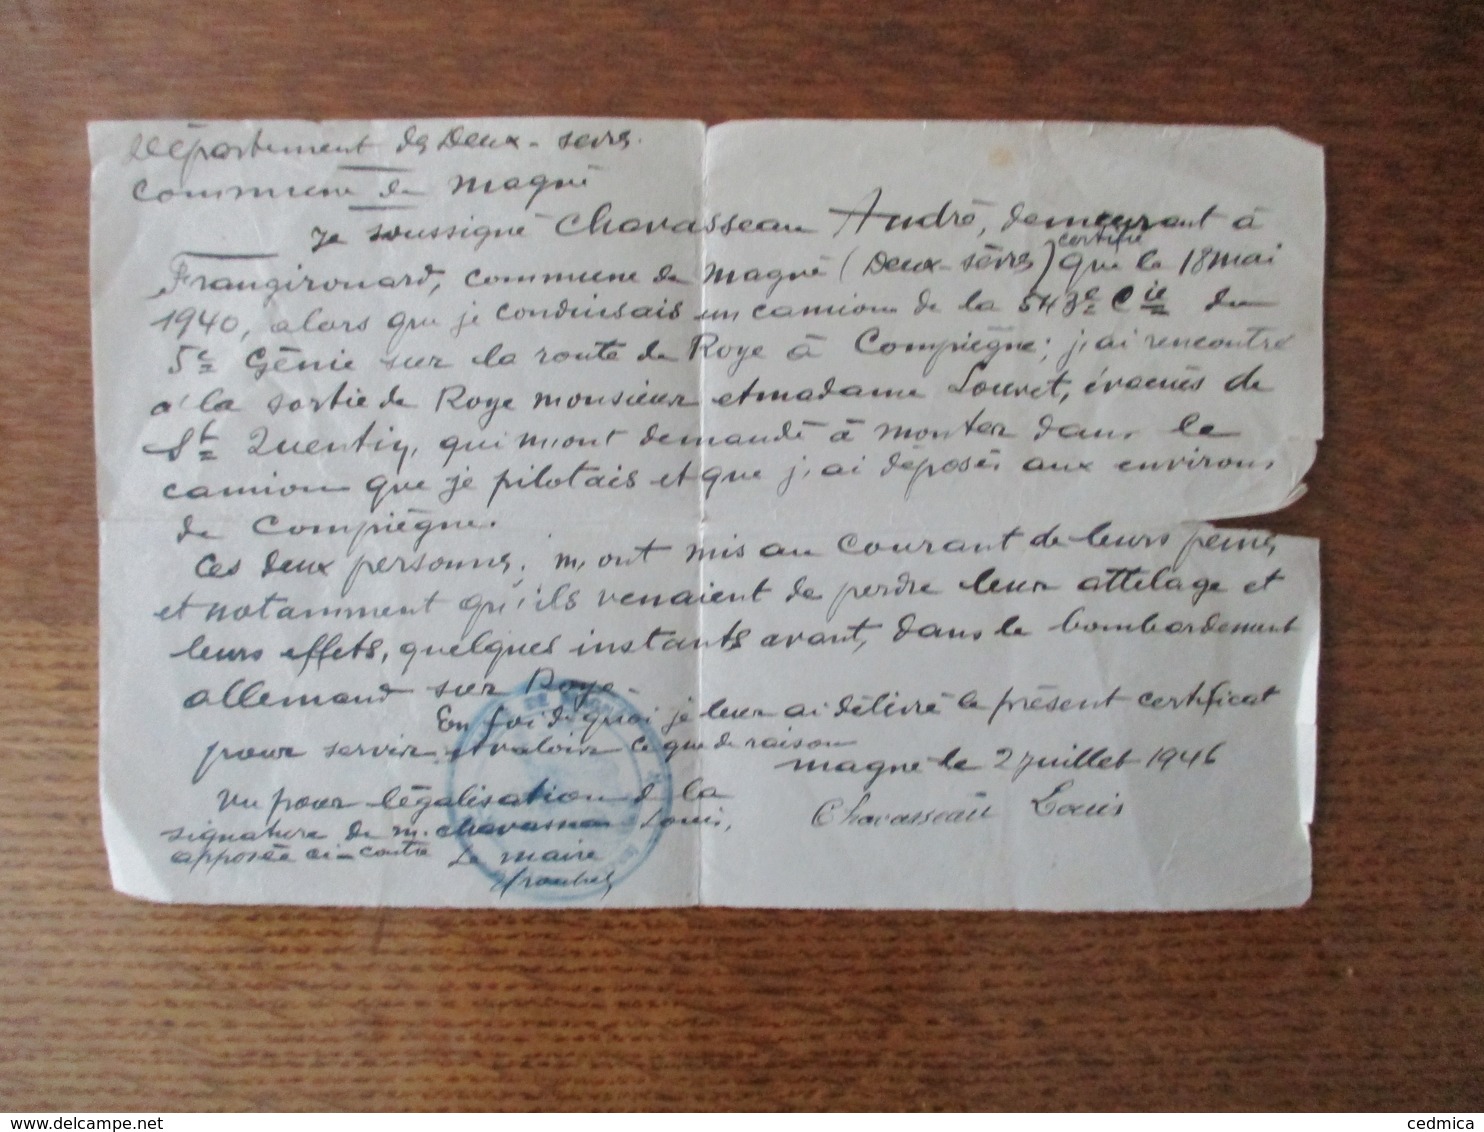 Département des Deux-sevres.
Commune de Magné
Je soussigné Chavasseau André, demeurant à
certifie
Frangirouard, commune de Magné (Deux-sèvres) que le 18 mai
1940, alors que je conduisais un camion de la 543e Cie du
5e Génie sur la route de Roye à Compiègne; j'ai rencontré
a' la sortie de Roye monsieur et madame Louvet, évacués de
St Quentin, qui m'ont demandé à monter dans le
camion que je pilotais et que j'ai déposés aux environs
de Compiègne.
Ces deux personnes, m'ont mis au courant de leurs peines
et notamment qu'ils venaient de perdre leur attelage et
leurs effets, quelques instants avant, dans le bombardement
allemand sur Roye.
En foi de quoi je leur ai délivré le présent certificat
pour servir et valoir ce que de raison
Magné le 2 Juillet 1946
Vu pour légalisation de la
Chavasseau Louis
signature de M. Chavasseau Louis,
apposée ci-contre Le Maire
cedmica
delcampe.net